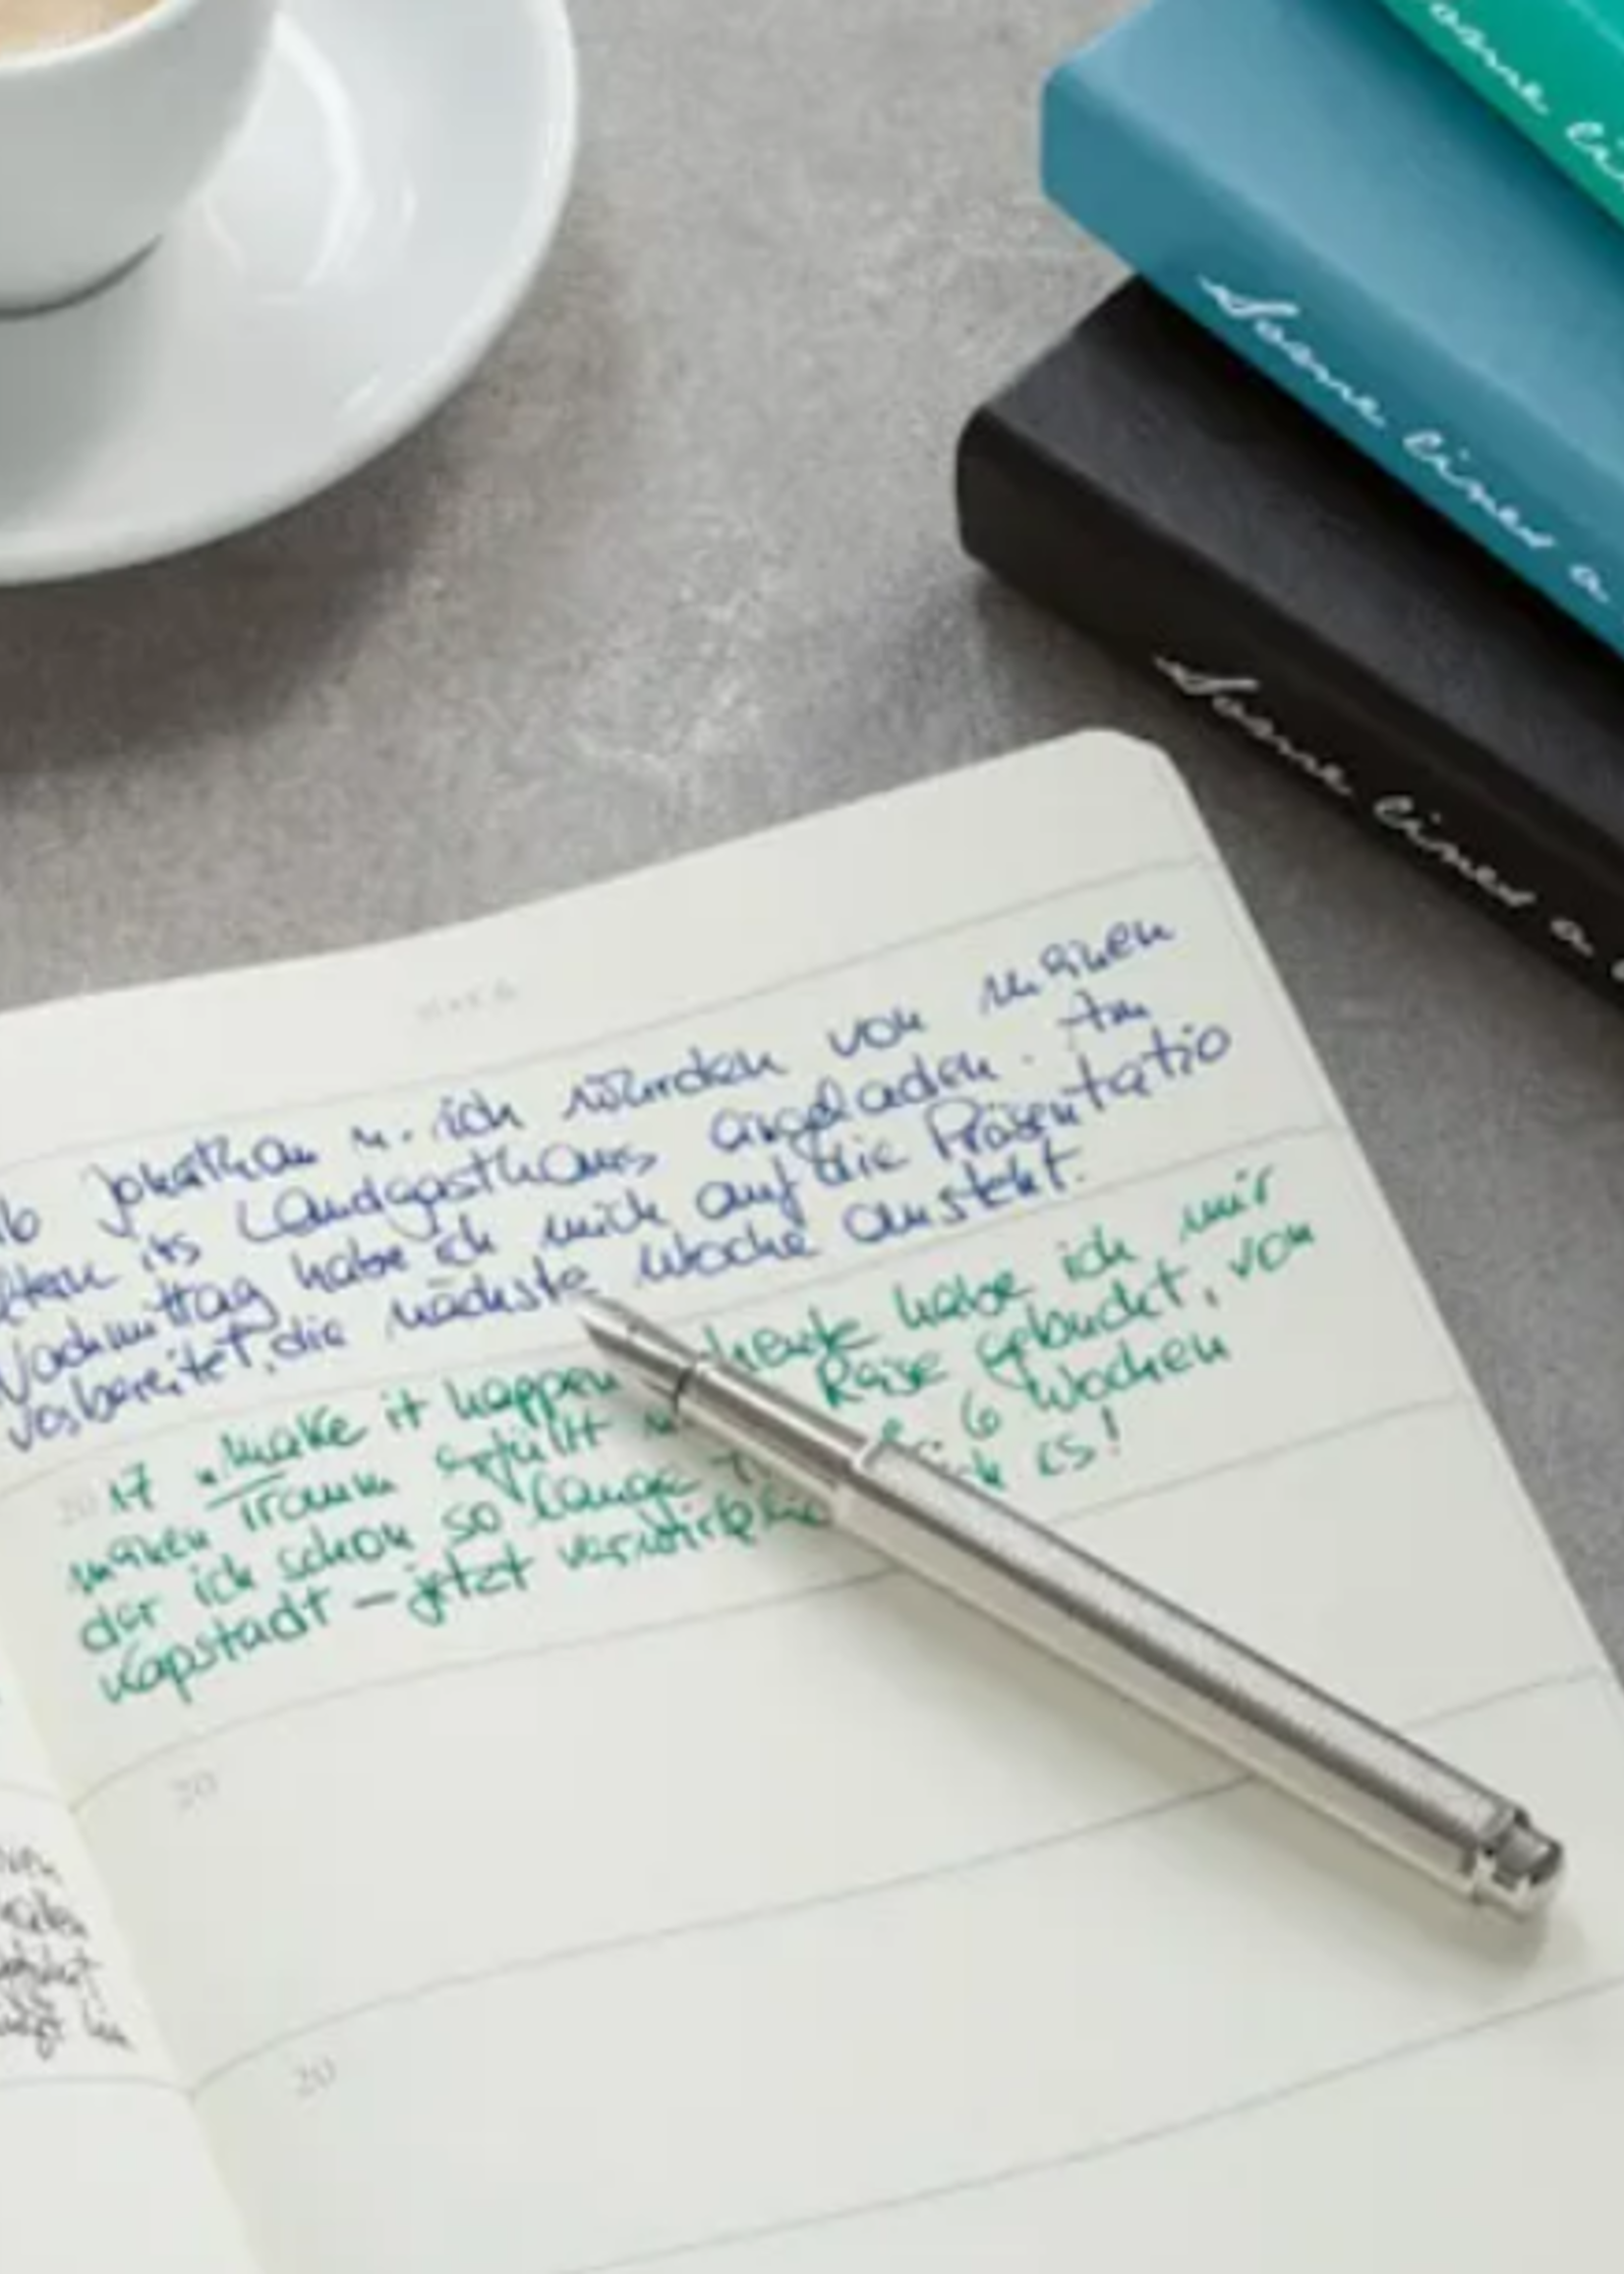 Some li
Some lines a
Some lines a
MAY 6
16 Jonathan u. ich wurden von meinen
Eltern ins Landgasthaus eingeladen. Am
Nachmittag habe ich mich auf die Präsentatio
vorbereitet, die nächste Woche ansteht.
20 17 „Make it happen heute habe ich mir
meinen Traum erfüllt Reise gebucht, von
der ich schon so lange 6 Wochen
Kapstadt – jetzt verwirkliche ich es!
20
20